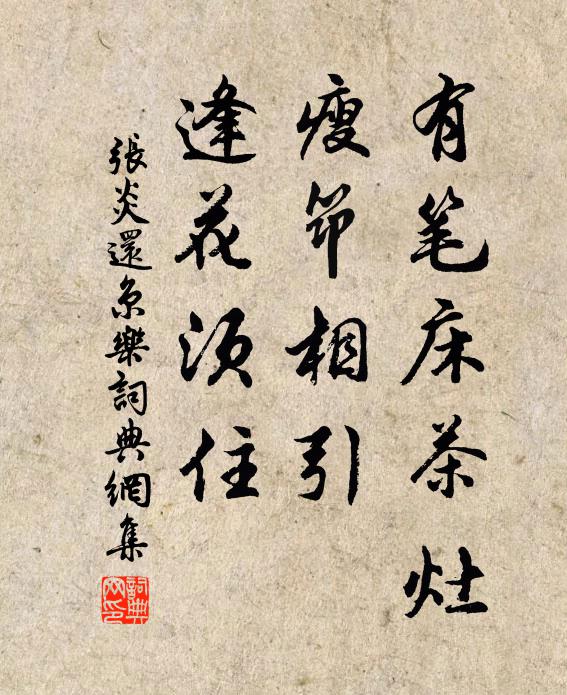 有笔床茶灶
瘦筇相引
逢花须住
張炎還京樂詞典網集
詞典网印